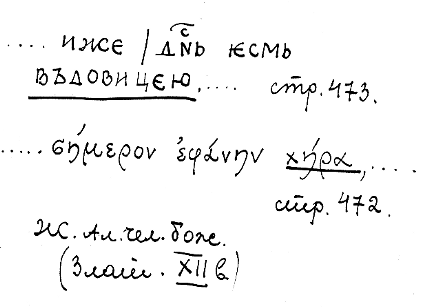 .... иже / дн͠сь ѥсмь
въдовицею, .... стр. 473.
..... σήμερον ἐφάνην χήρα, ....
стр. 472.
Ж. Ал. чел. бож.
(Злат. XII в)